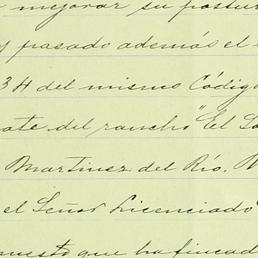 mejorar su postur
y pasado además el
34 del mismo Código
ate del rancho "El So
Martinez del Río,
el Señor Licenciado
puesto que ha fincad